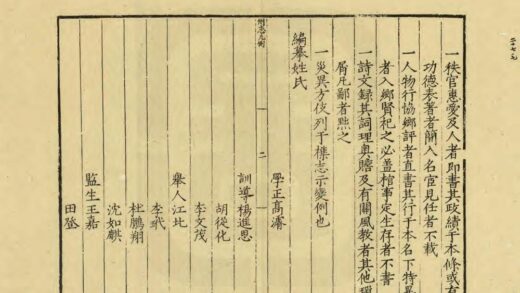 一秩官惠愛及人者即書其政績于本條或有
功德表著者開入名宦見任者不載
一人物行協鄉評者直書其行于本名下特異
者入鄉賢祀之必盖棺事定生存者不書
一詩文錄其詞理奧贍及有關風教者其他
屑凡鄙者㸃之
一災異方伎列于櫽志示變例也
編摹姓氏
學正髙濬
訓導楊進恩
胡從化
李文茂
舉人江北
李珉
杜鵬翔
沈如麒
監生王嘉
田登
州志凡例
二